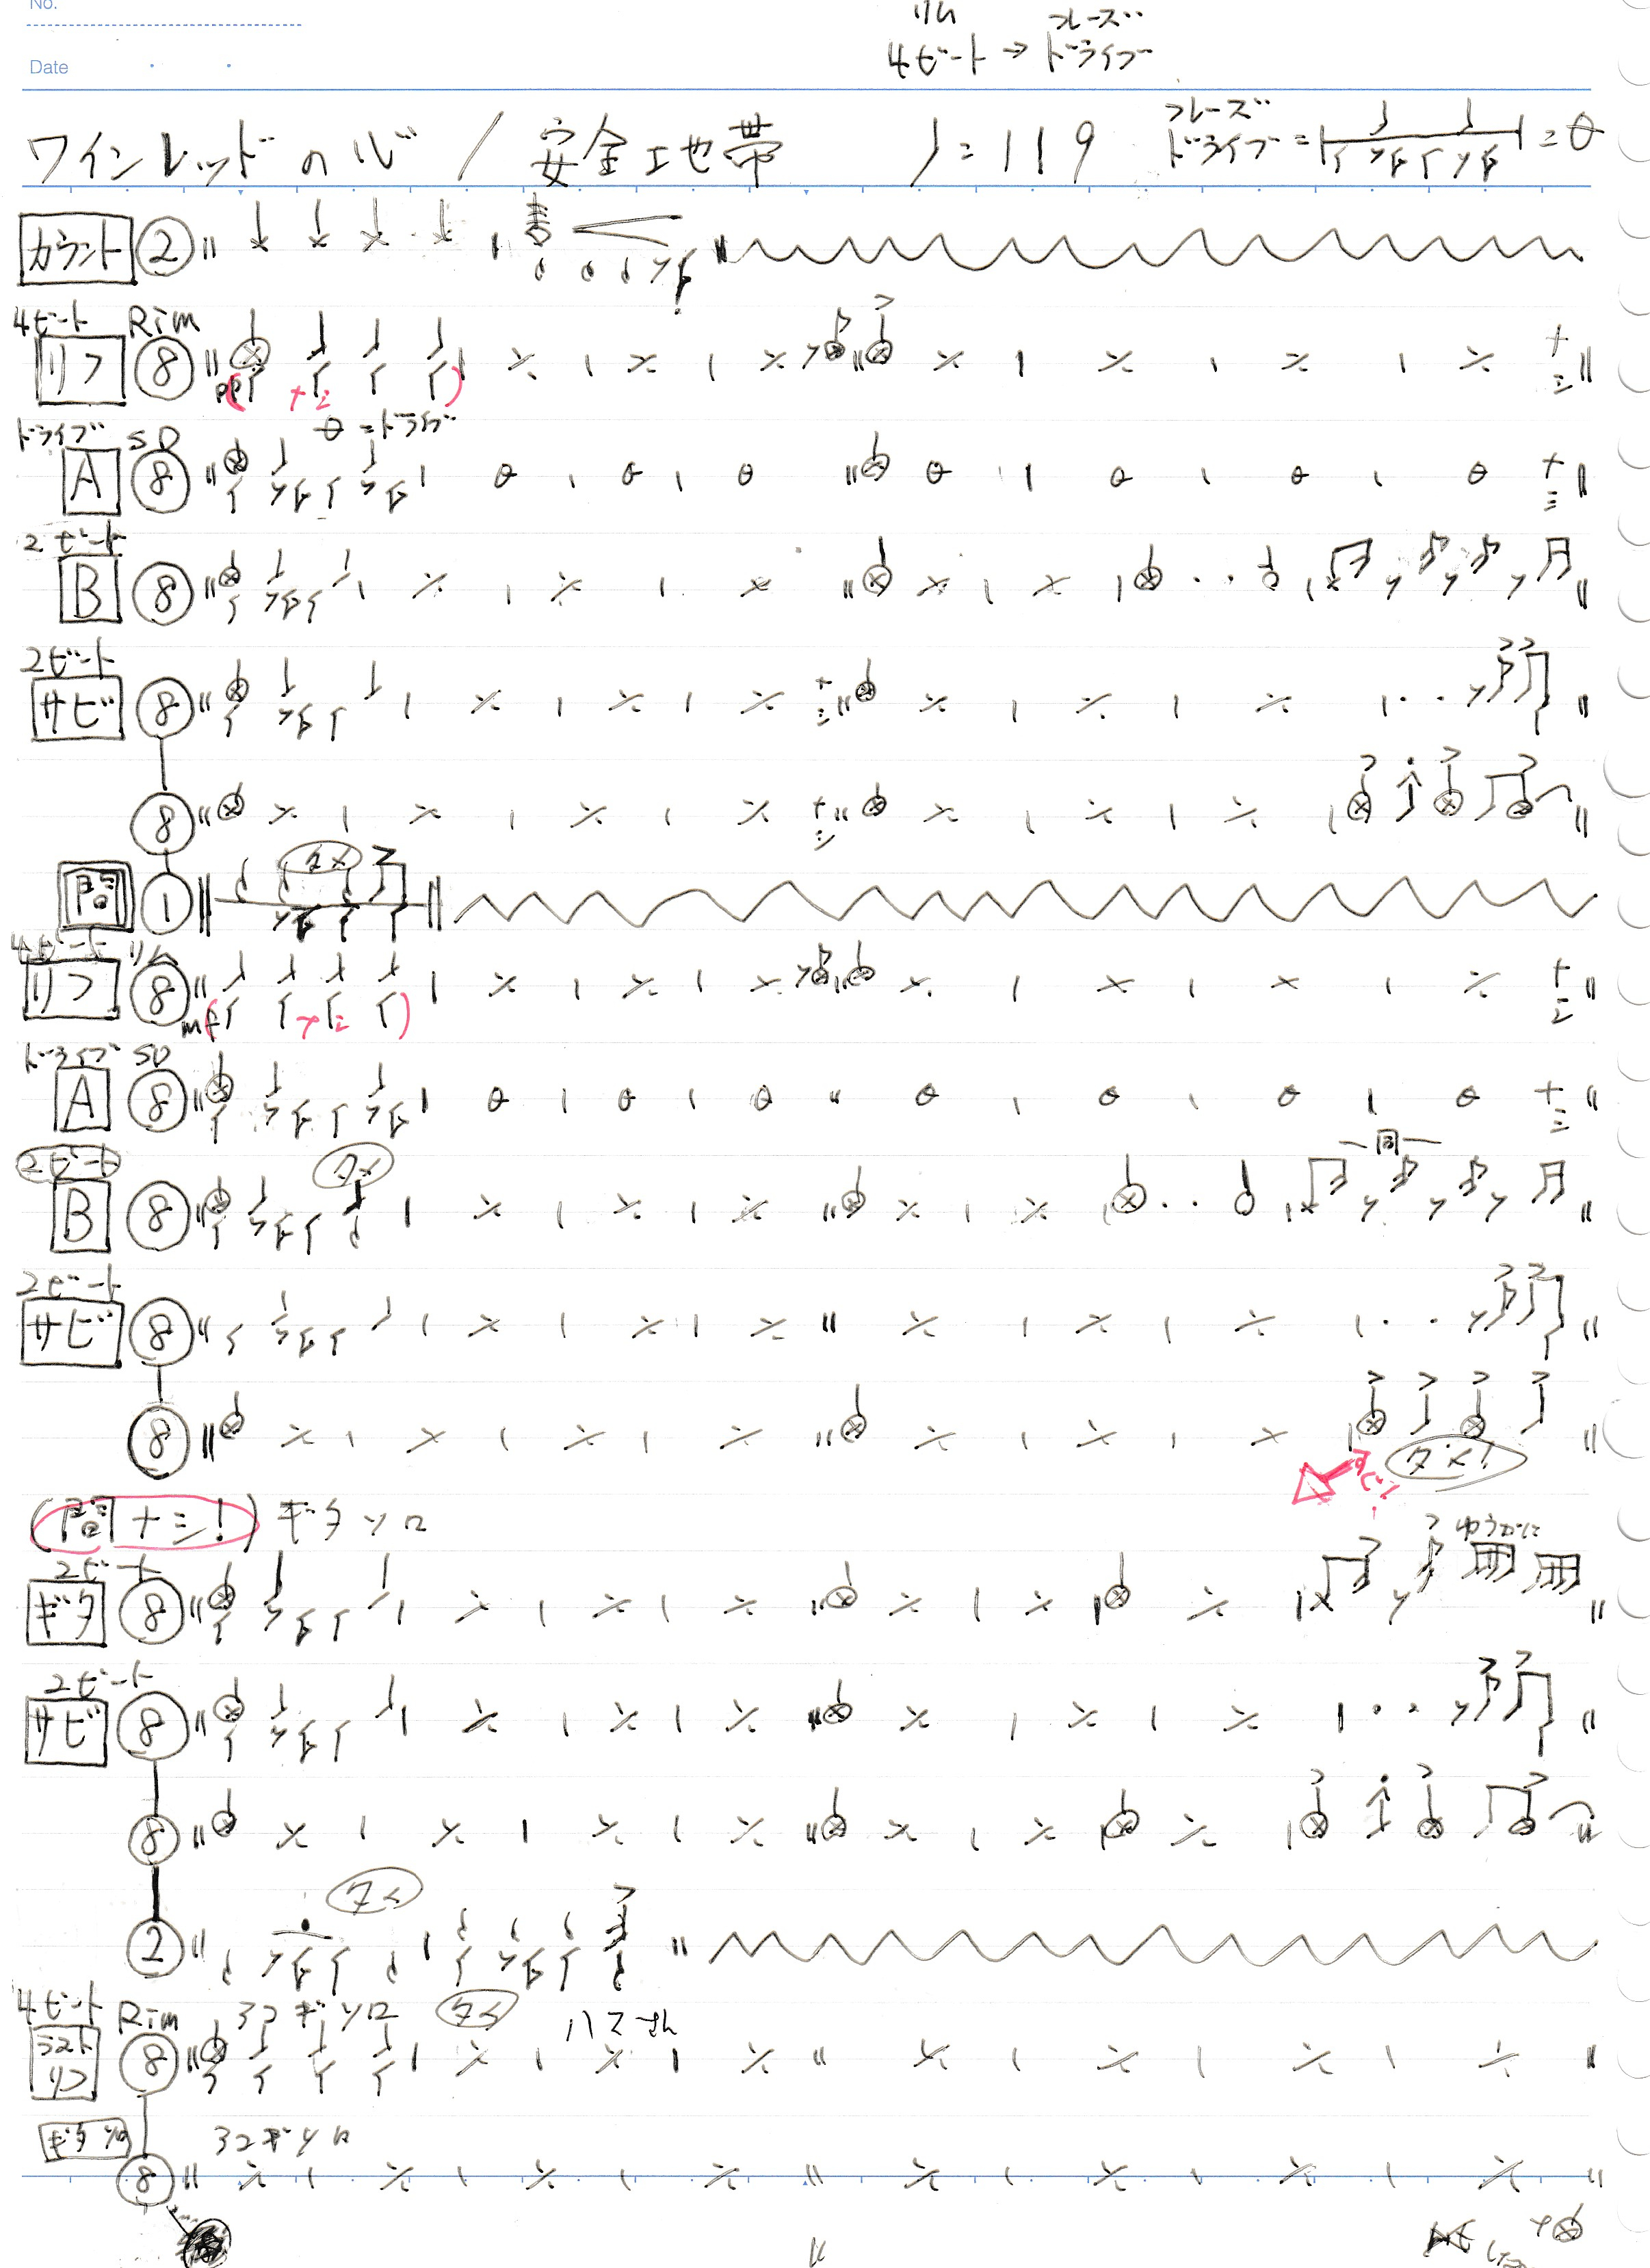 No.
リム フレーズ
Date 4ビート → ドライブ
フレーズ
ワインレッドの心 / 安全地帯 ♩=119 ドライブ= =θ
カウント ②
4ビート Rim
リフ ⑧ pp
+ミ
ドライブ SD θ=ドライブ
A ⑧ θ θ θ θ θ θ θ
2ビート
B ⑧
2ビート
サビ ⑧
⑧
タメ
間 ①
4ビート リム
リフ ⑧
mf
ドライブ SD
A ⑧ θ θ θ θ θ θ θ
2ビート タメ 同
B ⑧
2ビート
サビ ⑧
⑧
タメ!
(間ナシ!) ギタソロ
2ビート
ギタ ⑧
2ビート
サビ ⑧
⑧
タメ
②
4ビート Rim 32ギソロ タメ
ラスト
リフ ⑧
ギタソロ 32ギソロ
⑧